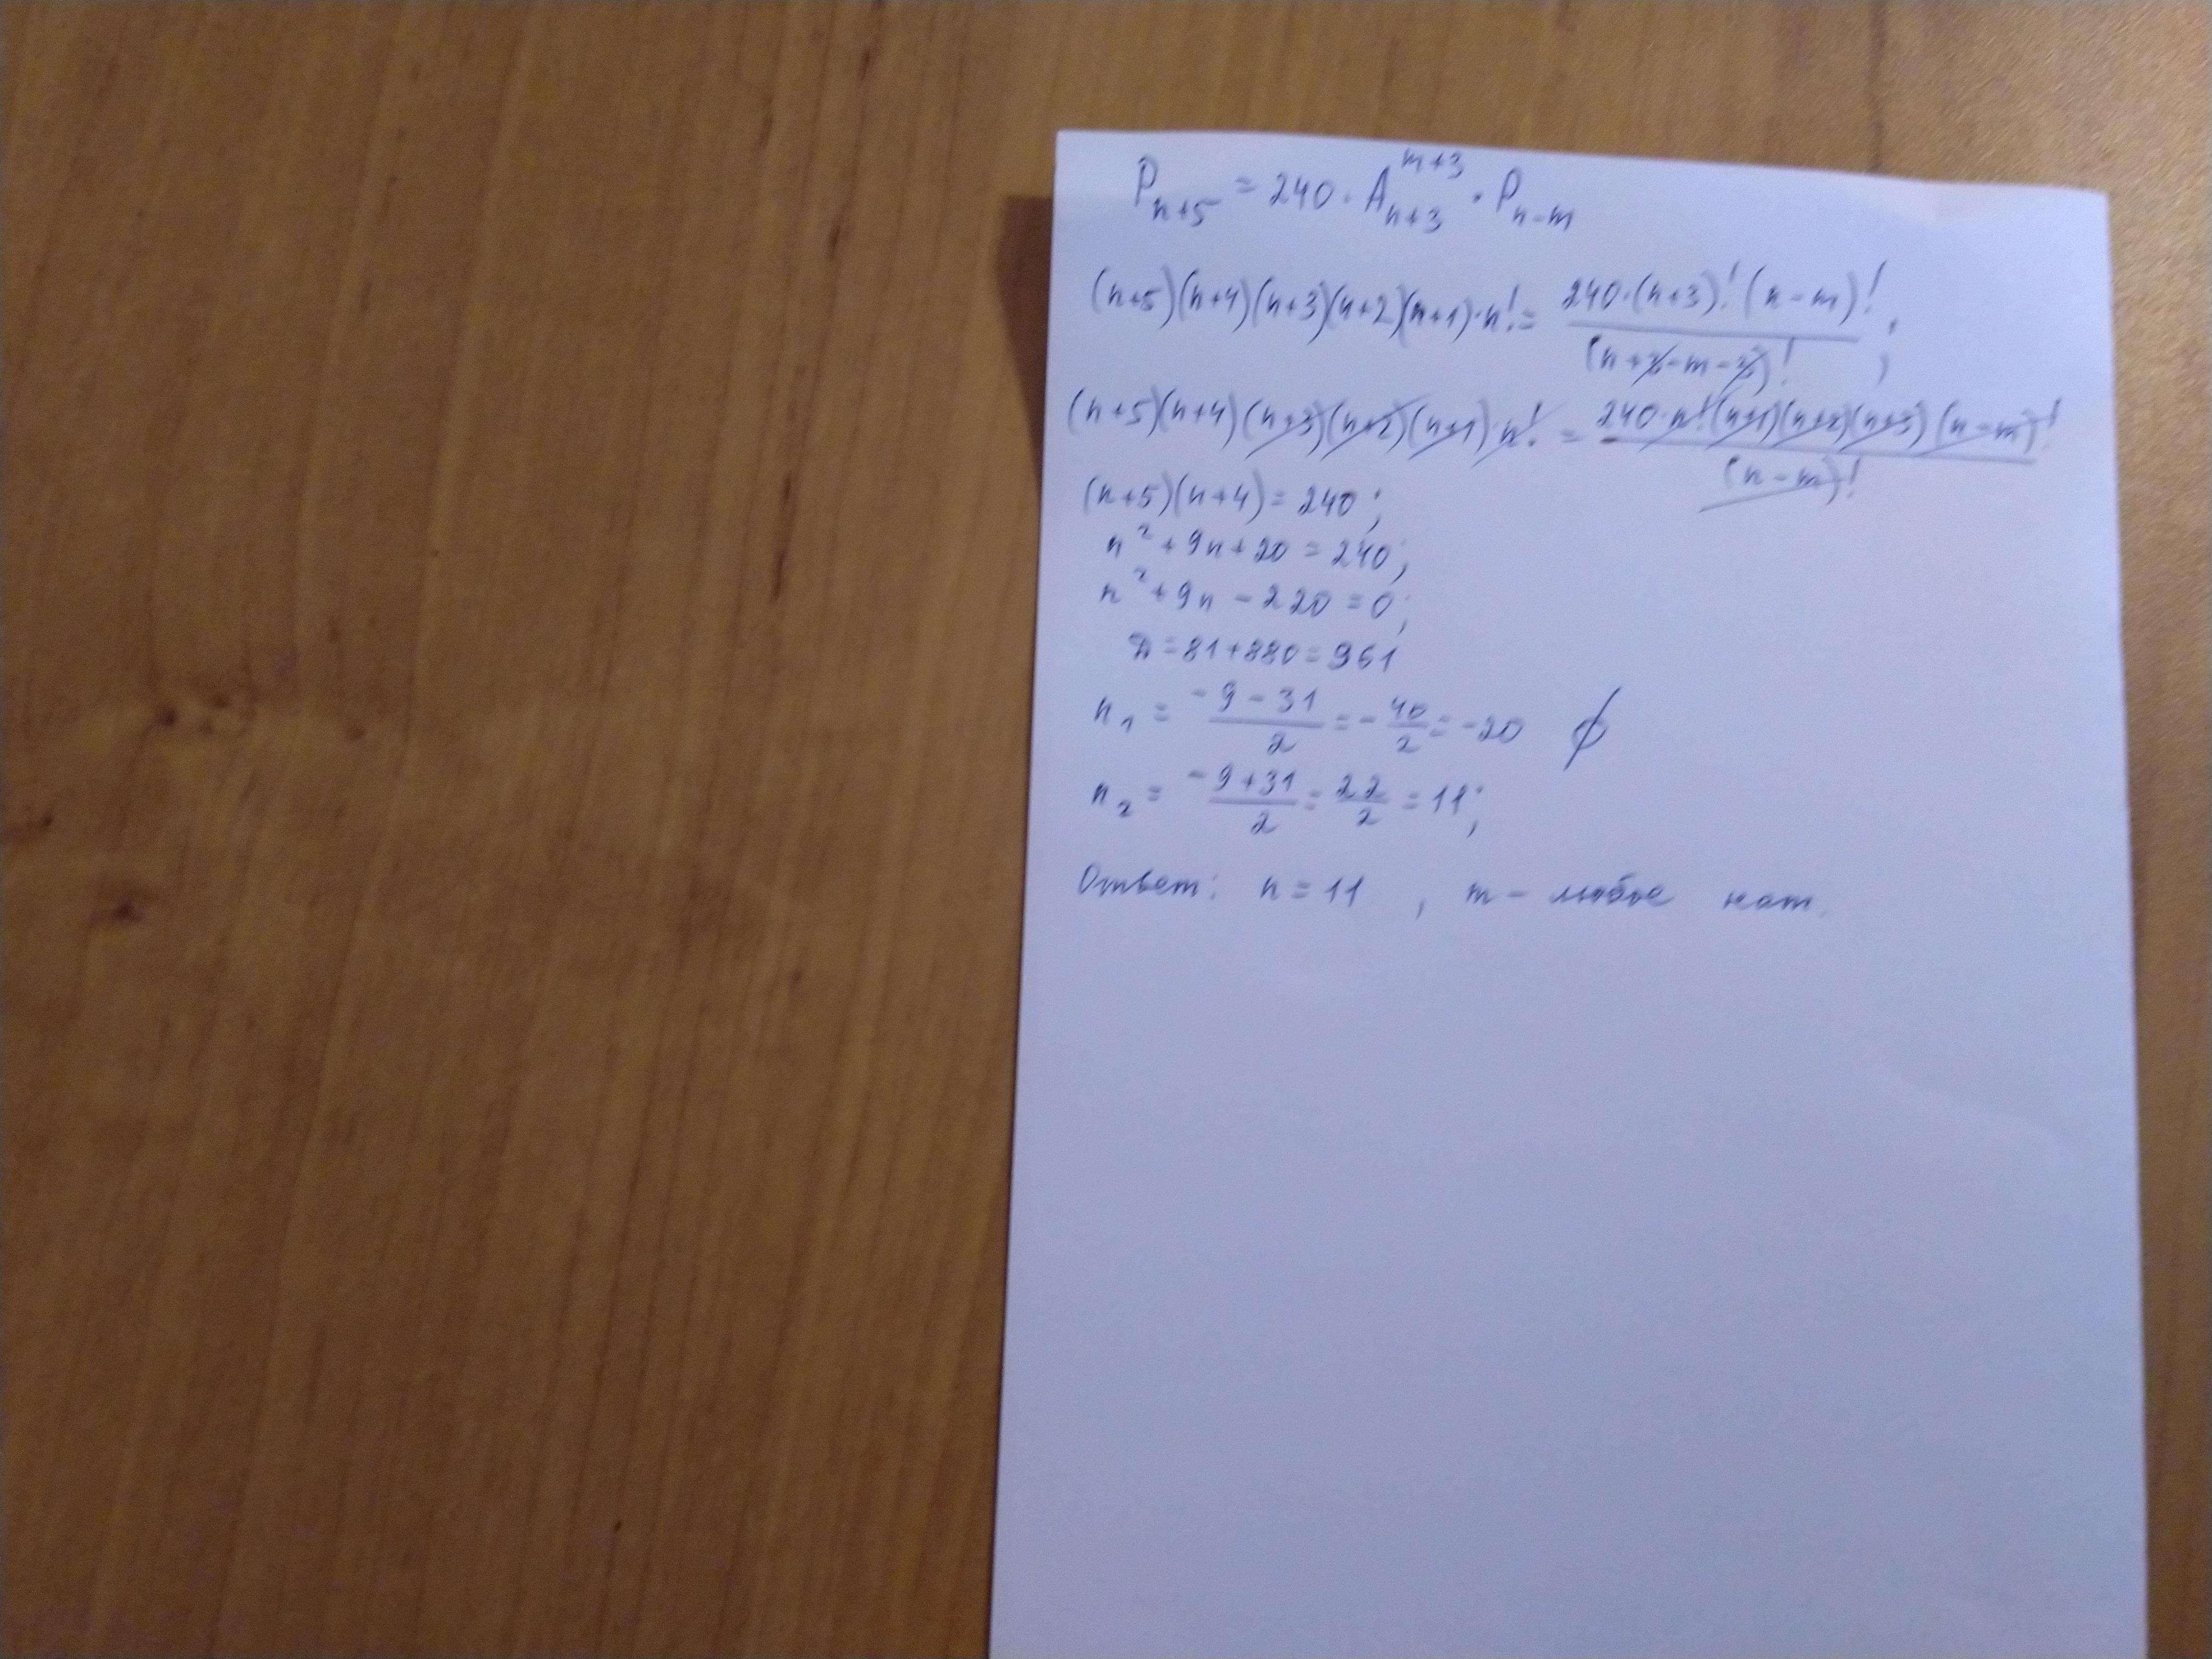 P_{n+5} = 240 · A_{n+3}^{m+3} · P_{n-m}
(n+5)(n+4)(n+3)(n+2)(n+1)·n! = \frac{240·(n+3)!(n-m)!}{(n+3-m-3)!};
(n+5)(n+4)(n+3)(n+2)(n+1)·n! = \frac{240·n!(n+1)(n+2)(n+3)(n-m)!}{(n-m)!}
(n+5)(n+4)=240;
n²+9n+20=240;
n²+9n-220=0;
D=81+880=961
n₁ = \frac{-9-31}{2} = -\frac{40}{2} = -20 ∅
n₂ = \frac{-9+31}{2} = \frac{22}{2} = 11;
Ответ: n=11, m - любое нат.